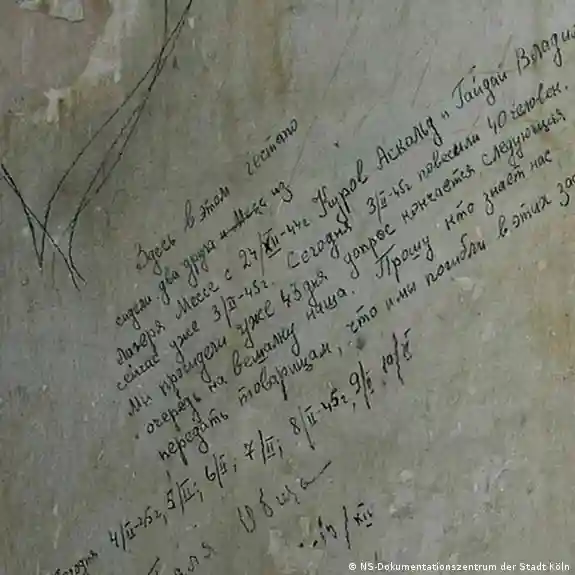 Здесь в этом гестапо
сидели два друга и Месс из
лагеря Мессе с 24/XII-44г Куров Аскольд и Гайдай Владим
сейчас уже 3/II-45г. Сегодня 3/II-45г повесили 40 человек.
Мы просидели уже 43 дня допрос кончается следующая
очередь на вешалку наша. Прошу кто знает нас
передать товарищам, что и мы погибли в этих зас
Сегодня 4/II-45г, 5/II; 6/II; 7/II; 8/II-45г, 9/II, 10/II
/XII
© NS-Dokumentationszentrum der Stadt Köln